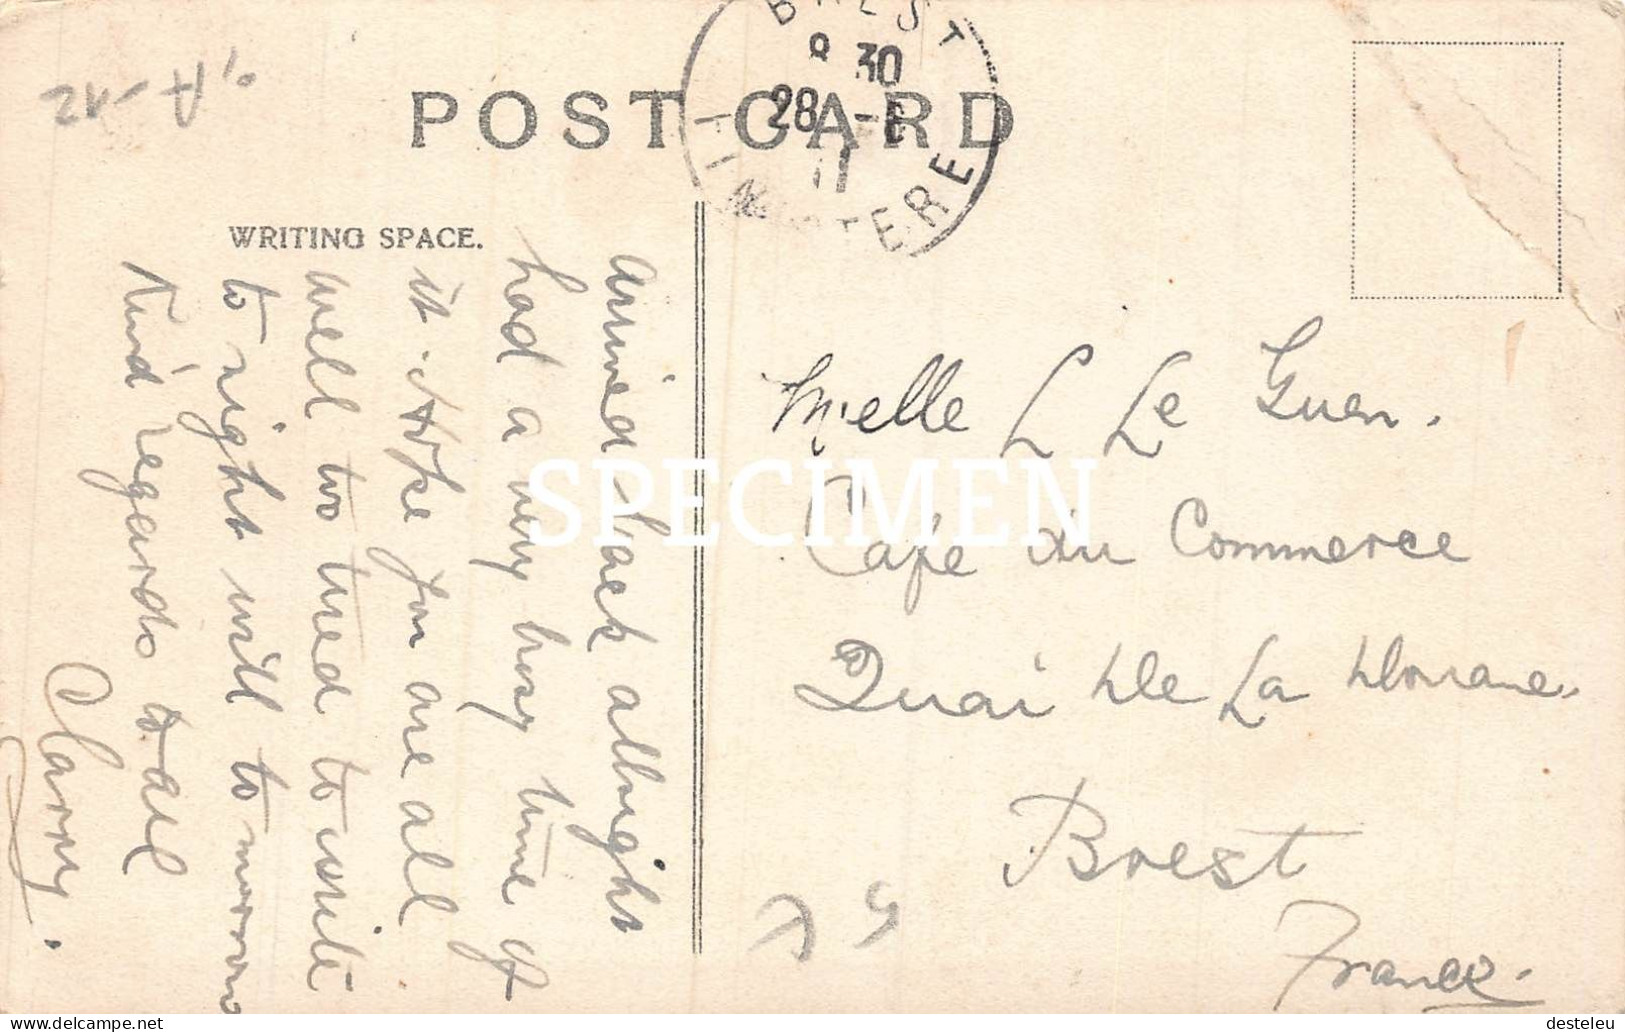 POST CARD
BREST
8 30
28 -
11
FINISTERE
WRITING SPACE.
Arrived back allright
had a very busy time of
it. Hope you are all
well too tired to write
to night will to morrow
Kind regards to all
Clarry.
Melle L Le Guen.
Cafe du Commerce
Quai De La Douane.
Brest
France.
SPECIMEN
desteleu